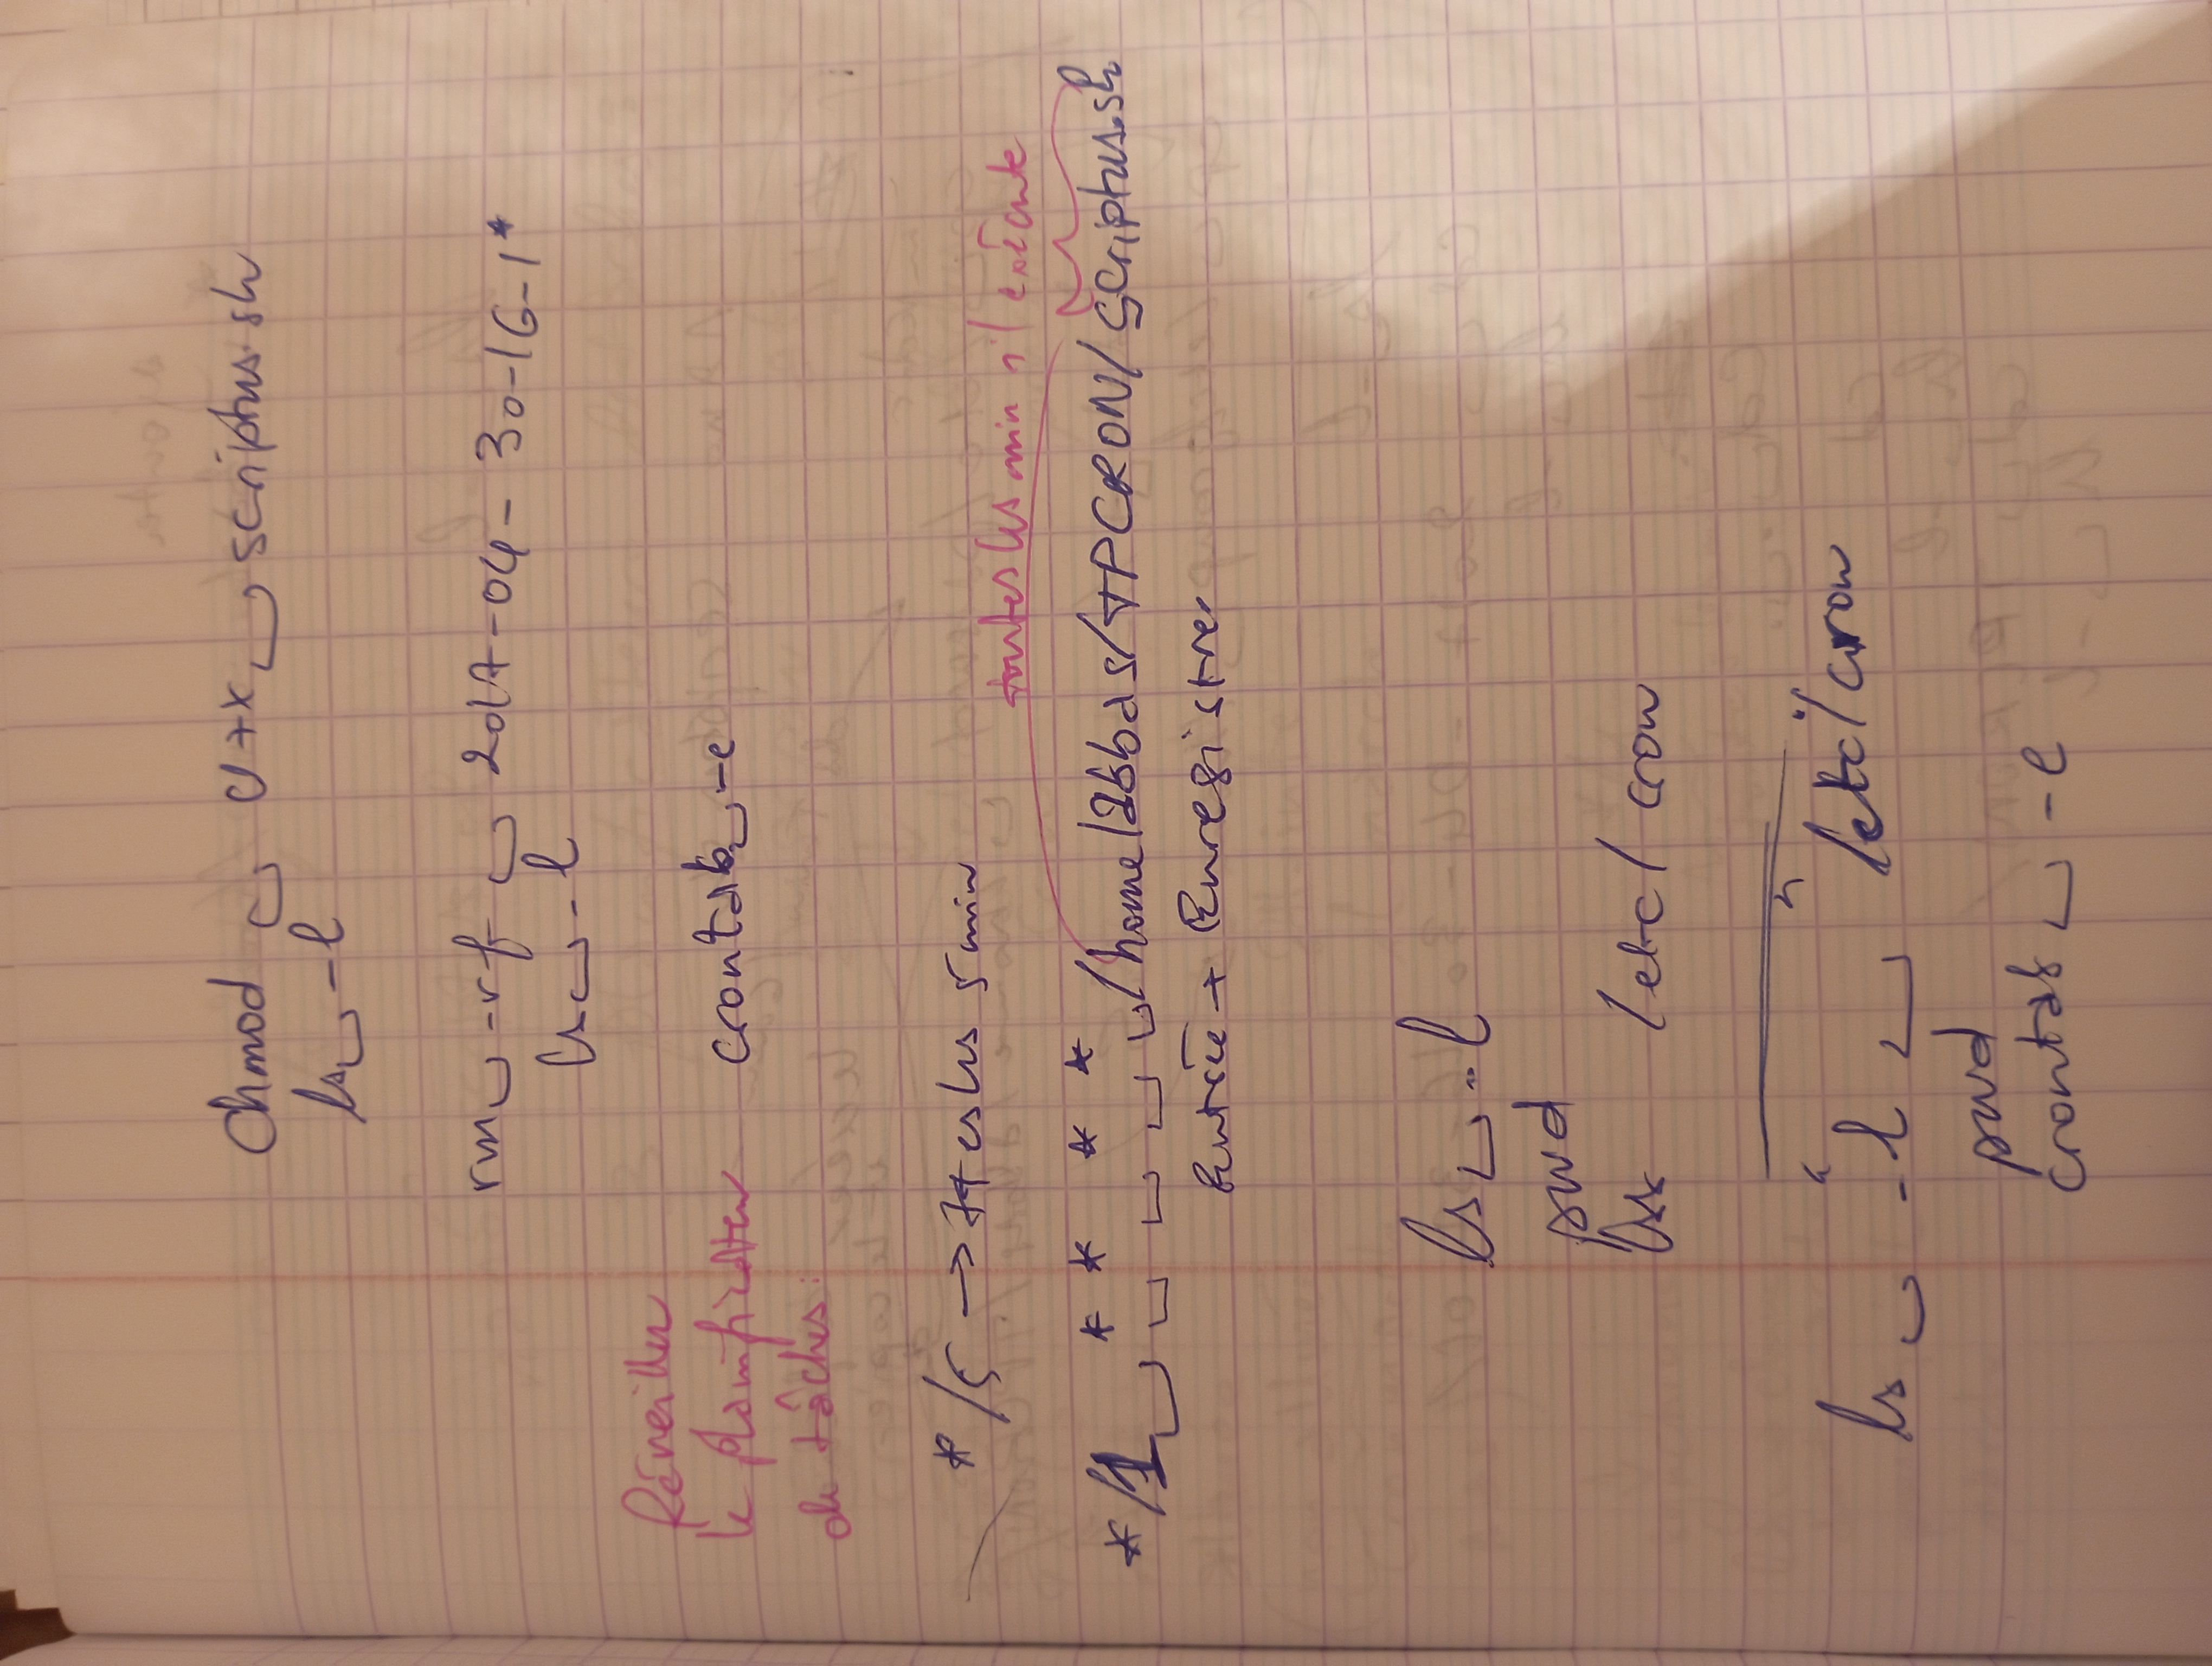 chmod ␣ u+x ␣ scriptus.sh
ls ␣ -l
rm ␣ -rf ␣ 2017-04-30-16-1*
ls ␣ -l
Réveiller
le planificateur
de tâches:
crontab ␣ -e
*/5 → ttes les 5 min
toutes les min il exécute
*/1 ␣ * ␣ * ␣ * ␣ * ␣ /home/abbas/TPCRON/scriptus.sh
Entrée + Enregistrer
ls ␣ -l
pwd
ls /etc/cron
ls ␣ -l ␣ /etc/cron
pwd
crontab ␣ -e